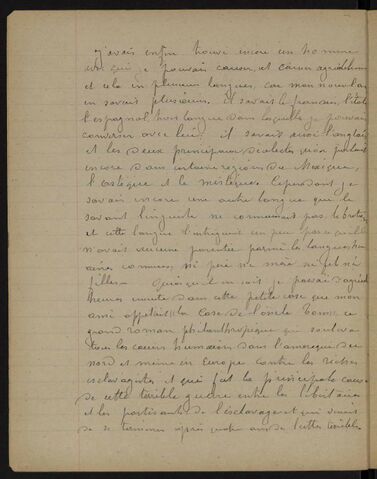 j'avais enfin trouvé encore un homme
avec qui je pouvais causer, et causer agréablement
et cela en plusieurs langues, car mon nouvel ami
en savait plusieurs. il savait le français, l'italien
l'espagnol, trois langues dans lesquelles je pouvais
converser avec lui, il savait aussi l'anglais
et les deux principaux dialectes qu'on parlait
encore dans certaine regions du Mexique,
l'astèque et le mistèque. Cependant je
savais encore une autre langue que le
savant linguiste ne connaissait pas, le breton
et cette langue l'intriguait un peu parce qu'elle
n'avait aucune parenté parmi les langues
connues, ni père ni mère ni fils ni
filles. Quoiqu'il en soit je passai d'agréables
heures ensuite dans cette petite case que mon
ami appelait la Case de l'oncle Tome, ce
grand roman philanthropique qui souleva
tous les cœurs humains dans l'amerique du
nord et même en Europe contre les riches
esclavagistes et qui fut la principale cause
de cette terrible guerre entre les libertaires
et les partisants de l'esclavage et qui venait
de se terminer après quatre ans de luttes terribles